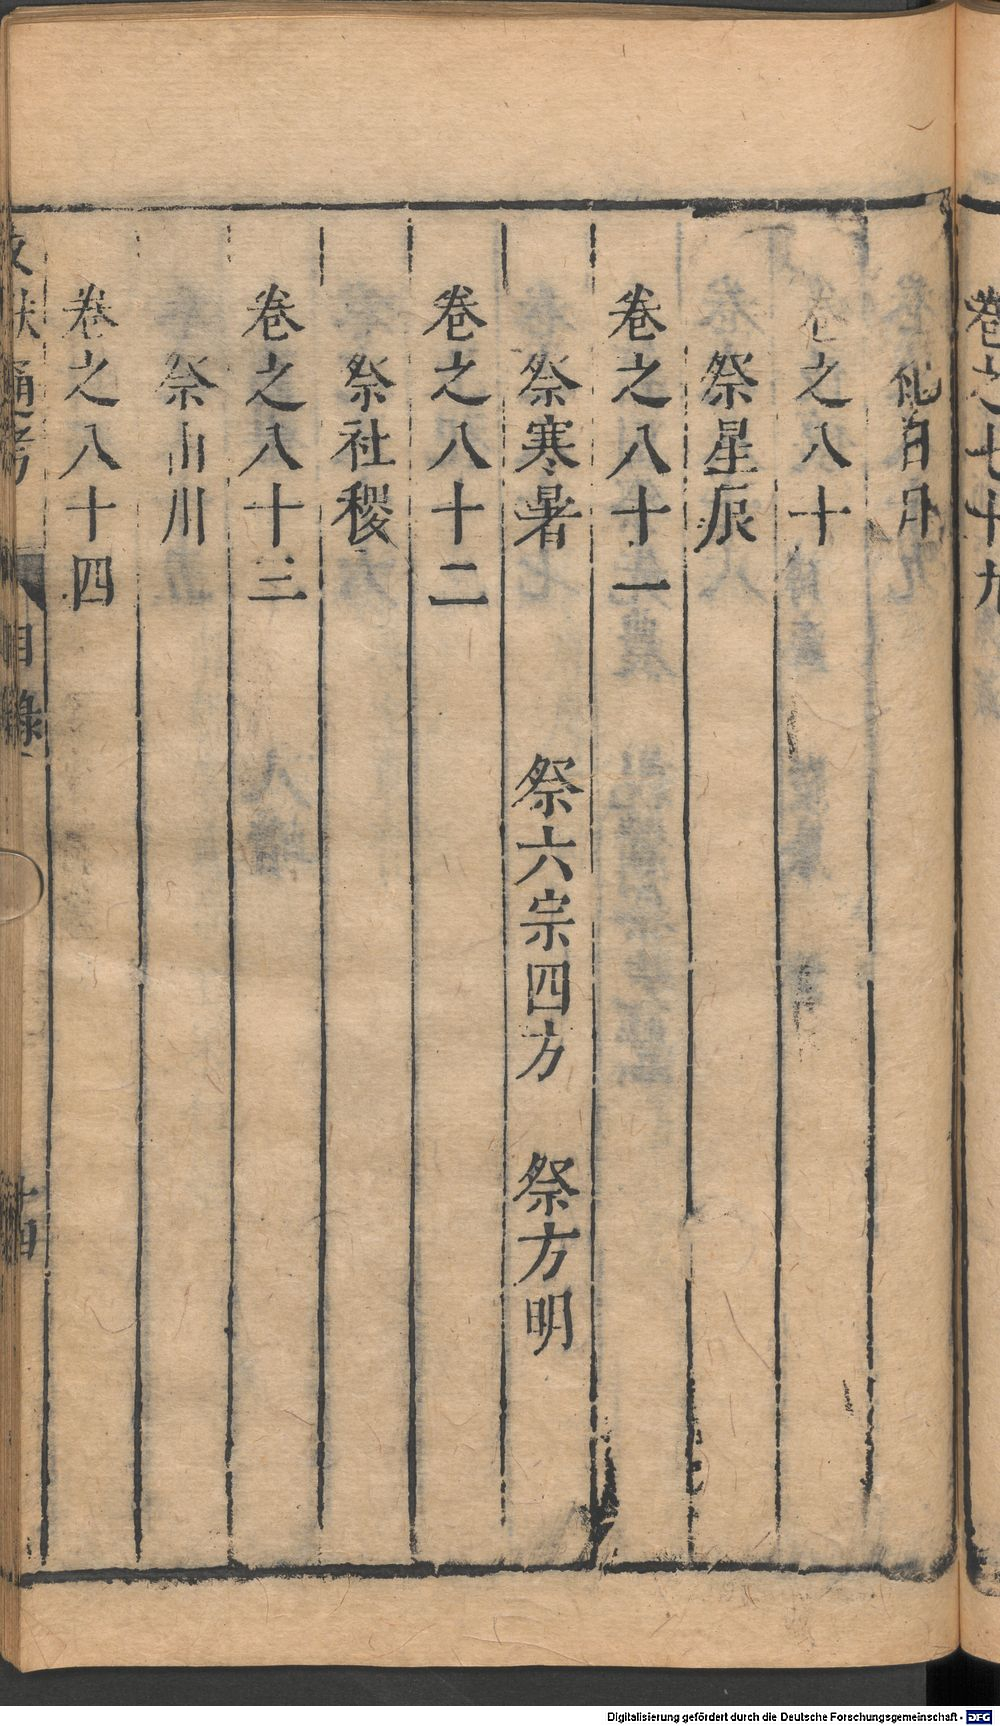 卷之七十九
祀日月
卷之八十
祭星辰
卷之八十一
祭寒暑　祭六宗四方　祭方明
卷之八十二
祭社稷
卷之八十三
祭山川
卷之八十四
文獻通考　目錄　十四
Digitalisierung gefördert durch die Deutsche Forschungsgemeinschaft - DFG